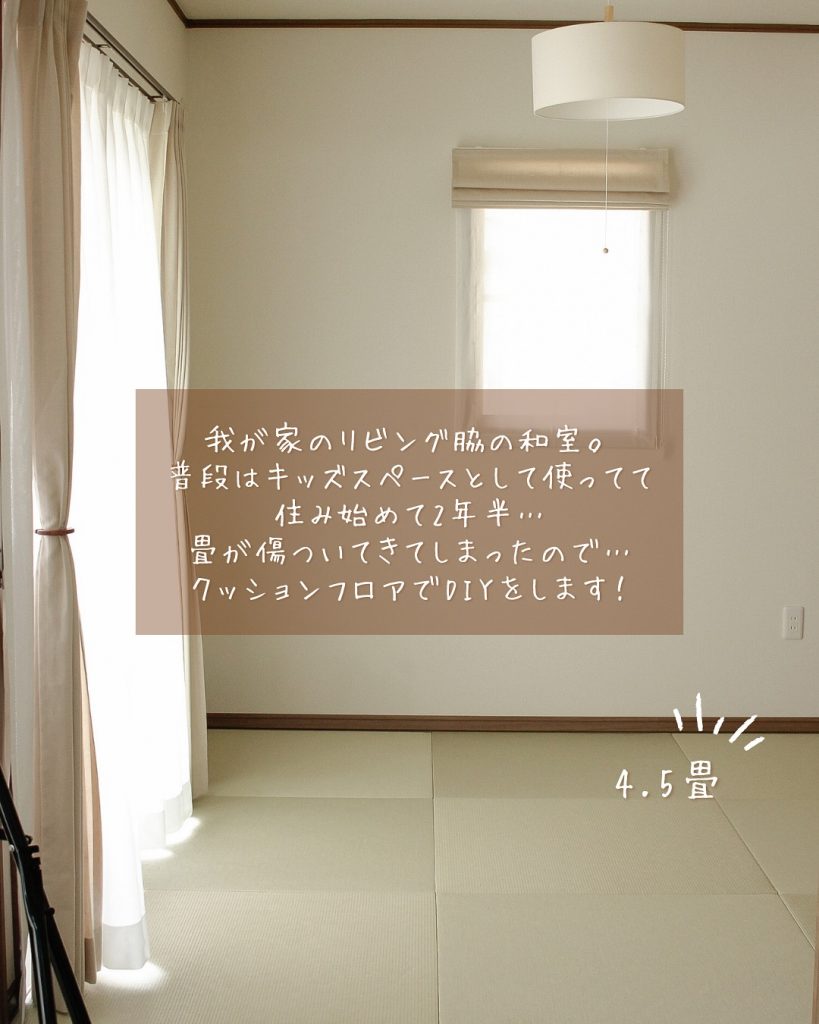 我が家のリビング脇の和室。
普段はキッズスペースとして使ってて
住み始めて2年半…
畳が傷ついてきてしまったので…
クッションフロアでDIYをします!
4.5畳